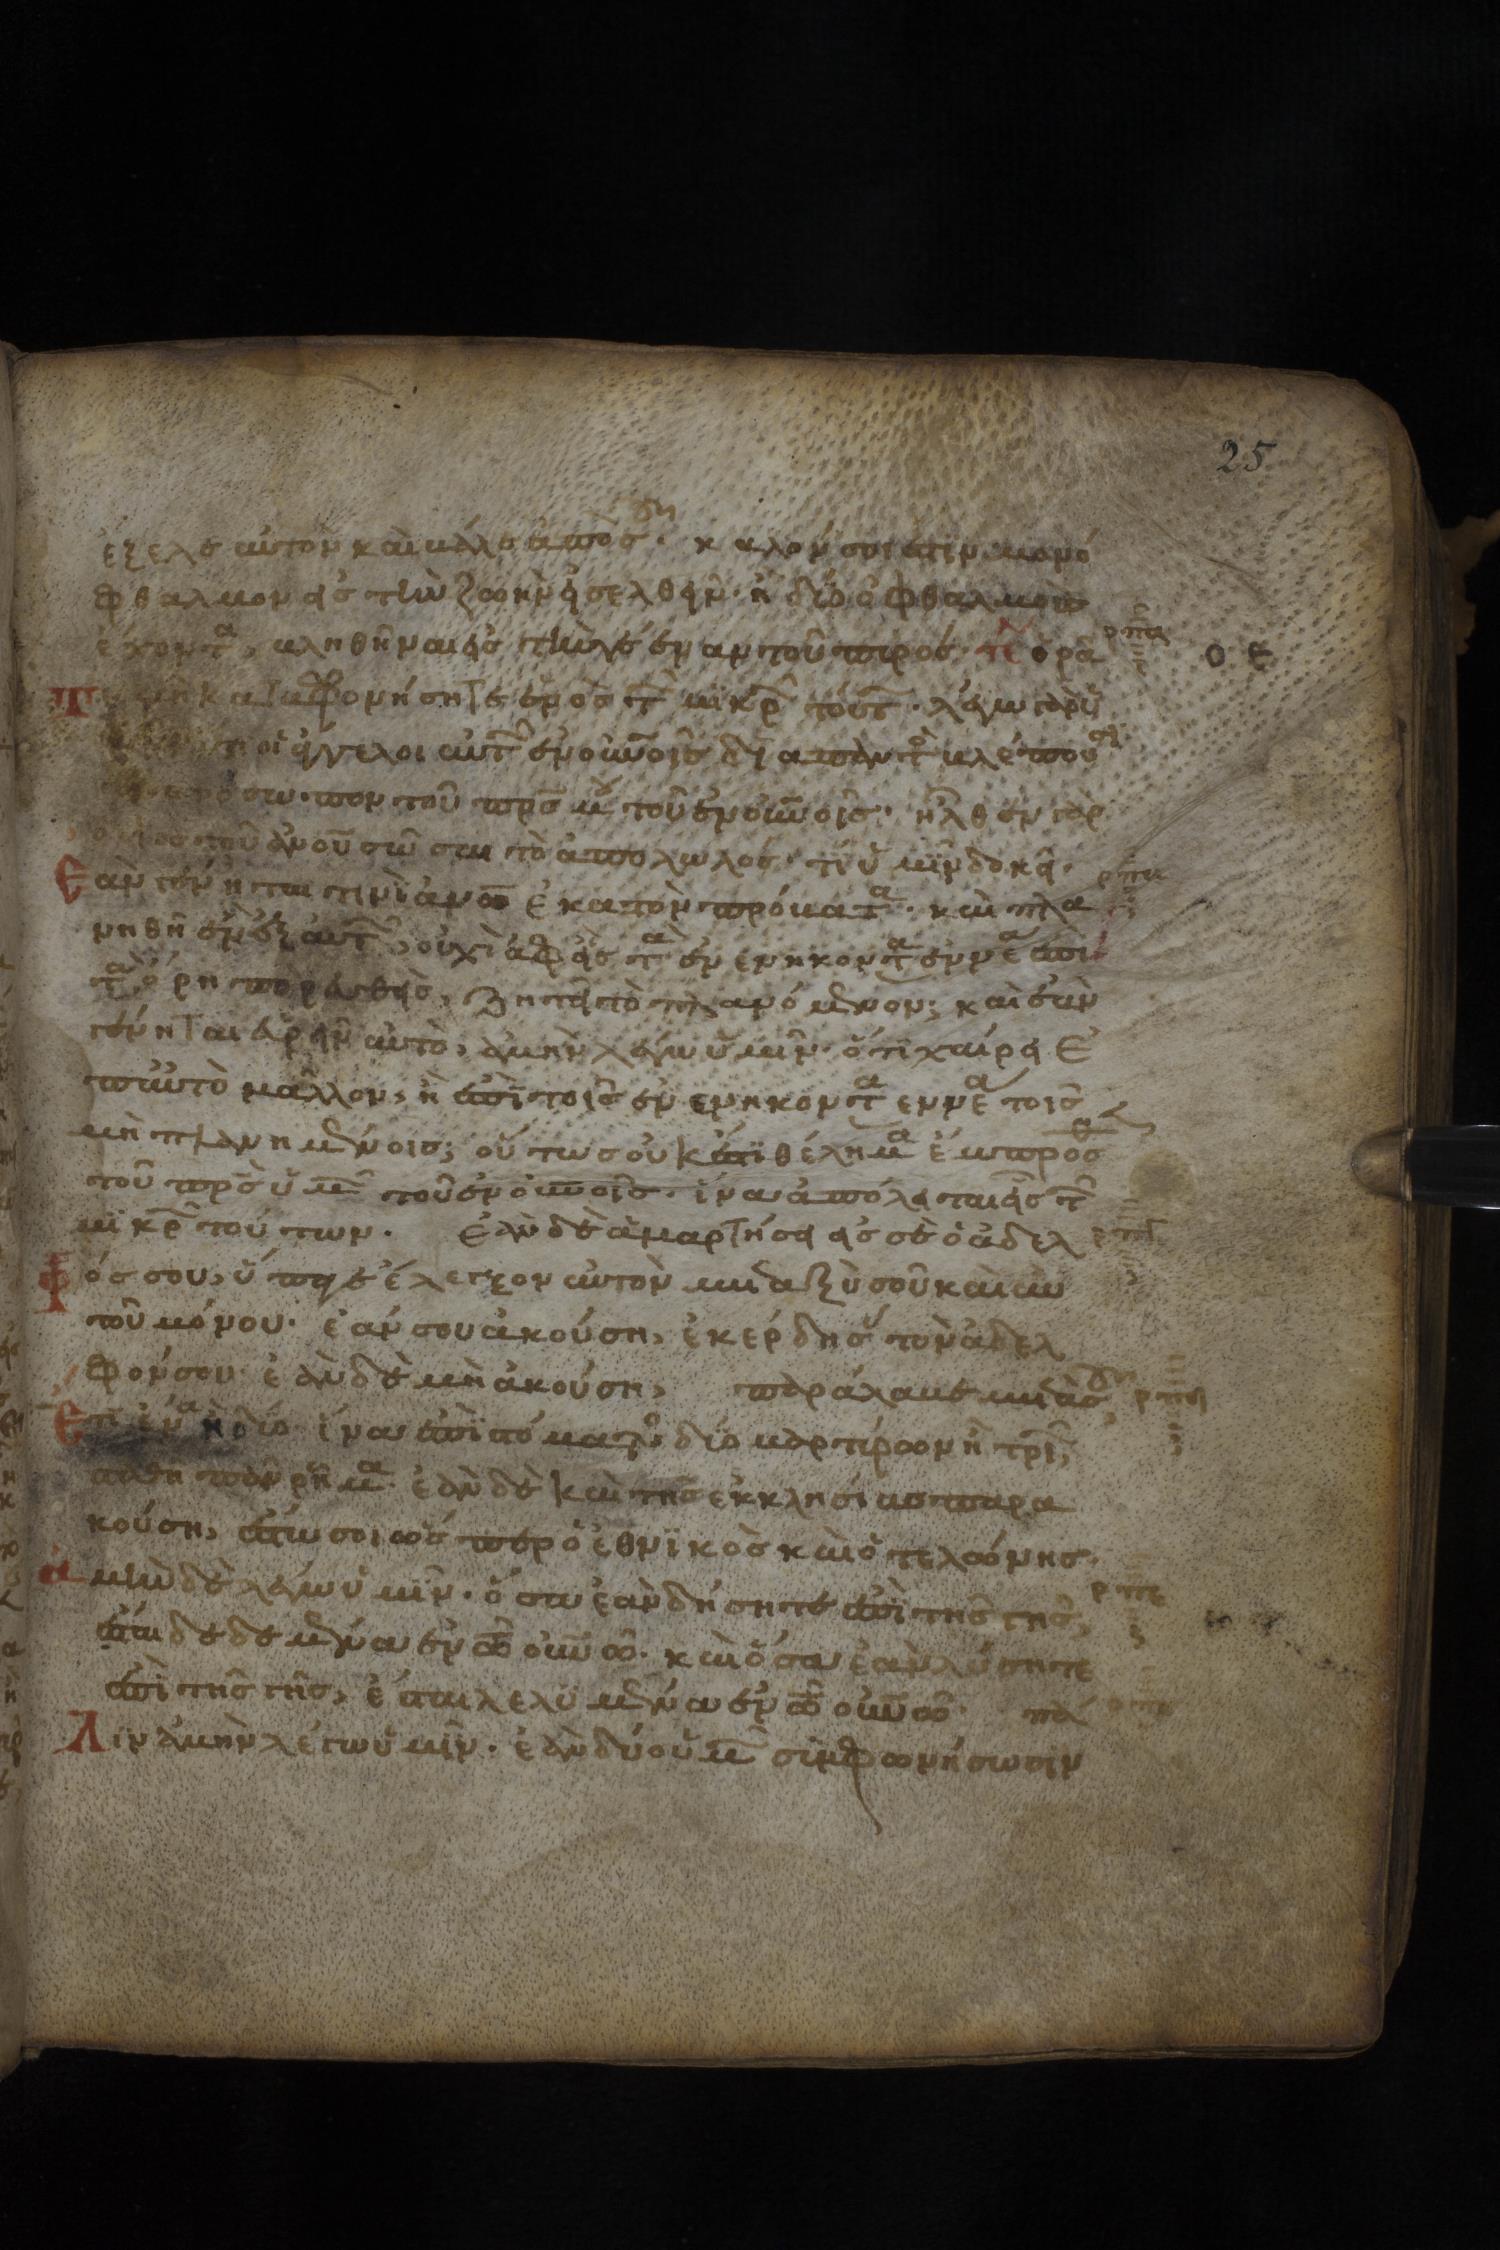 25
ἔξελε αὐτὸν καὶ βάλε ἀπὸ σοῦ· καλόν σοι ἐστιν μονό
φθαλμον εἰς τὴν ζωὴν εἰσελθεῖν· ἢ δύο ὀφθαλμοὺς
ἔχοντα, βληθῆναι εἰς τὴν γέενναν τοῦ πυρός· ὁρᾶ
τε μὴ καταφρονήσητε ἑνὸς τῶν μικρῶν τούτων· λέγω γὰρ ὑ
οἱ ἄγγελοι αὐτῶν ἐν οὐνοῖς διαπαντὸς βλέπου
πρόσωπον τοῦ πρς μου τοῦ ἐν οὐνοῖς· ἦλθεν γὰρ
ὁ υἱὸς τοῦ ἀνου σῶσαι τὸ ἀπολωλός· τί ὑμῖν δοκεῖ·
Ἐὰν γένηται τινὶ ανω ἑκατὸν πρόβατα· καὶ πλα
νηθῆ ἓν ἐξ αὐτῶν, οὐχὶ ἀφεὶς τὰ ἐνενηκοντα ἐννέα ἐπὶ
τὰ ὄρη πορευθεὶς, ζητεῖ τὸ πλανόμενον; καὶ ἐὰν
γένηται εὑρεῖν αὐτὸ, ἀμὴν λέγω ὑμῖν· ὅτι χαίρει ἐ
π αὐτὸ μᾶλλον, ἢ ἐπὶ τοῖς ἐνενηκοντα ἐννέα τοῖς
μὴ πλανημένοις; οὕτως οὐκ ἔστι θέλημα ἔμπροσ
τοῦ πρς ὑμῶν τοῦ ἐν οὐνοῖς· ἵνα ἀπόληται εἷς τῶν
μικρῶν τούτων. Ἐὰν δὲ ἁμαρτήση εἰς σὲ ὁ ἀδελ
φός σου, ὕπαγε ἔλεγξον αὐτὸν μεταξὺ σοῦ καὶ αὐ
τοῦ μόνου· ἐάν σου ἀκούση, ἐκέρδησας τὸν ἀδελ
φόν σου· ἐὰν δὲ μὴ ἀκούση, παράλαβε μετὰ σοῦ
ἔτι ἕνα ἢ δύο· ἵνα ἐπὶ στόματος δύο μαρτύρων ἢ τριῶν,
σταθῆ πᾶν ῥῆμα· ἐὰν δὲ καὶ τῆς ἐκκλησίας παρα
κούση, ἔστω σοι ὥσπερ ὁ ἐθνικὸς καὶ ὁ τελώνης·
ἀμὴν δὲ λέγω ὑμῖν· ὅσα ἐὰν δήσητε ἐπὶ τῆς γῆς,
ἔσται δεδεμένα ἐν τῶ οὐνῶ· καὶ ὅσα ἐὰν λύσητε
ἐπὶ τῆς γῆς, ἔσται λελυμένα ἐν τῶ οὐνῶ· πά
Λιν ἀμὴν λέγω ὑμῖν· ἐὰν δύο ὑμῶν συμφωνήσωσιν